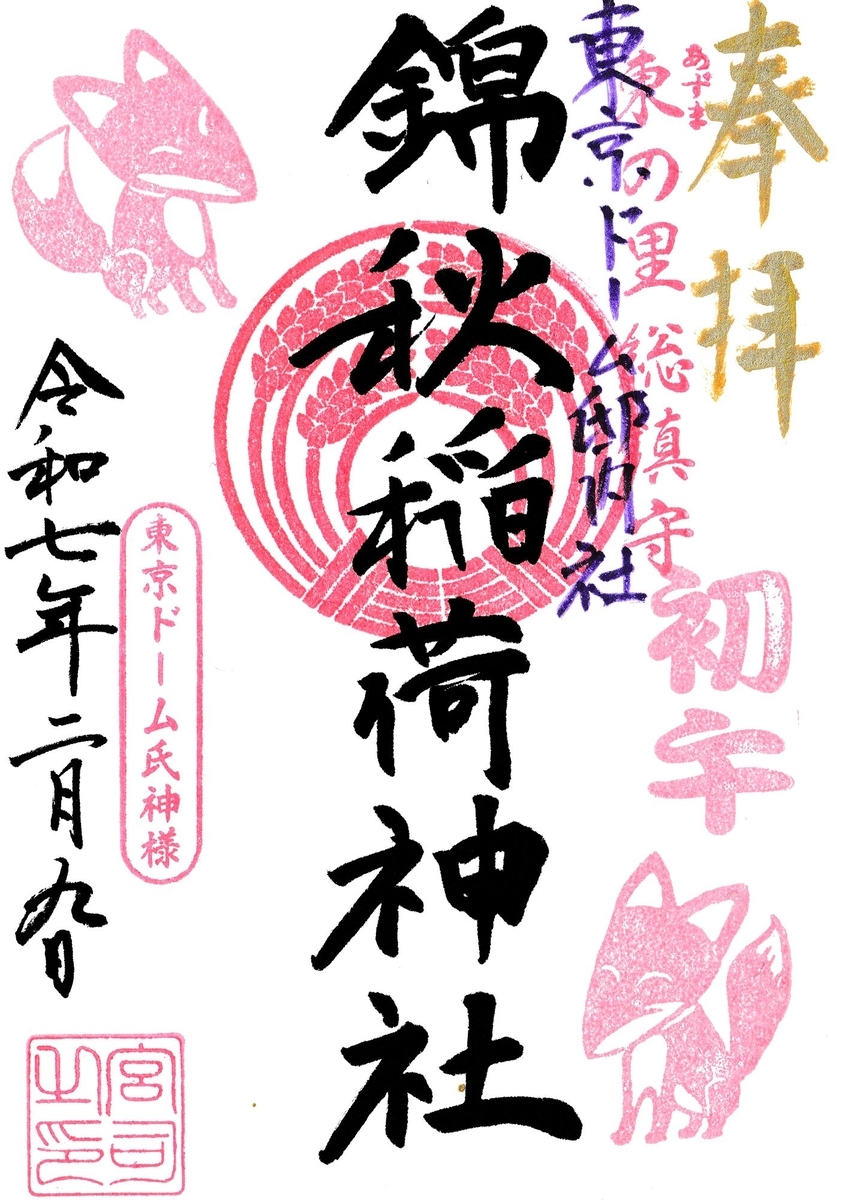 奉拝
あずま
東の里総鎮守
東京ドーム邸内社
初午
錦秋稲荷神社
東京ドーム氏神様
令和七年二月九日
宮司之印